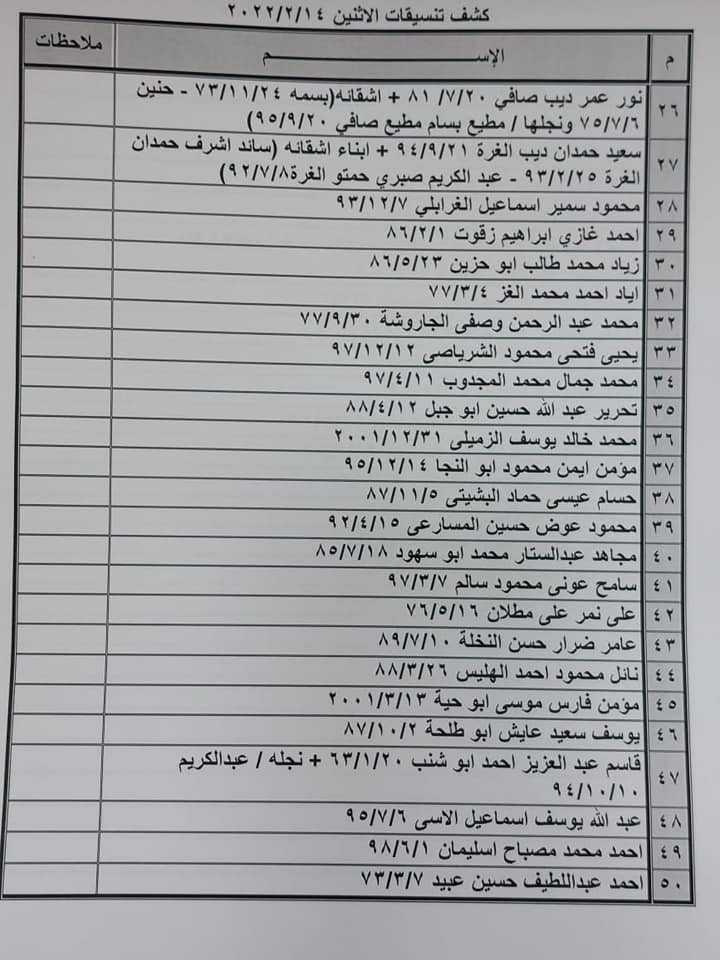 كشف تنسيقات الاثنين ٢٠٢٢/٢/١٤
م الإســـم ملاحظات
٢٦ نور عمر ديب صافي ٨١/٧/٢٠ + اشقائه(بسمه ٧٣/١١/٢٤ - حنين
٧٥/٧/٦ ونجلها / مطيع بسام مطيع صافي ٩٥/٩/٢٠)
٢٧ سعيد حمدان ديب الغرة ٩٤/٩/٢١ + ابناء اشقائه (سائد اشرف حمدان
الغرة ٩٣/٢/٢٥ - عبد الكريم صبري حمتو الغرة٩٢/٧/٨)
٢٨ محمود سمير اسماعيل الغرابلي ٩٣/١٢/٧
٢٩ احمد غازي ابراهيم زقوت ٨٦/٢/١
٣٠ زياد محمد طالب ابو حزين ٨٦/٥/٢٣
٣١ اياد احمد محمد الغز ٧٧/٣/٤
٣٢ محمد عبد الرحمن وصفى الجاروشة ٧٧/٩/٣٠
٣٣ يحيى فتحى محمود الشرياصى ٩٧/١٢/١٢
٣٤ محمد جمال محمد المجدوب ٩٧/٤/١١
٣٥ تحرير عبد الله حسين ابو جبل ٨٨/٤/١٢
٣٦ محمد خالد يوسف الزميلى ٢٠٠١/١٢/٣١
٣٧ مؤمن ايمن محمود ابو النجا ٩٥/١٢/١٤
٣٨ حسام عيسى حماد البشيتى ٨٧/١١/٥
٣٩ محمود عوض حسين المسارعى ٩٢/٤/١٥
٤٠ مجاهد عبدالستار محمد ابو سهود ٨٥/٧/١٨
٤١ سامح عونى محمود سالم ٩٧/٣/٧
٤٢ على نمر على مطلان ٧٦/٥/١٦
٤٣ عامر ضرار حسن النخلة ٨٩/٧/١٠
٤٤ نائل محمود احمد الهليس ٨٨/٣/٢٦
٤٥ مؤمن فارس موسى ابو حية ٢٠٠١/٣/١٣
٤٦ يوسف سعيد عايش ابو طلحة ٨٧/١٠/٢
٤٧ قاسم عبد العزيز احمد ابو شنب ٦٣/١/٢٠ + نجله / عبدالكريم
٩٤/١٠/١٠
٤٨ عبد الله يوسف اسماعيل الاسى ٩٥/٧/٦
٤٩ احمد محمد مصباح اسليمان ٩٨/٦/١
٥٠ احمد عبداللطيف حسين عبيد ٧٣/٣/٧